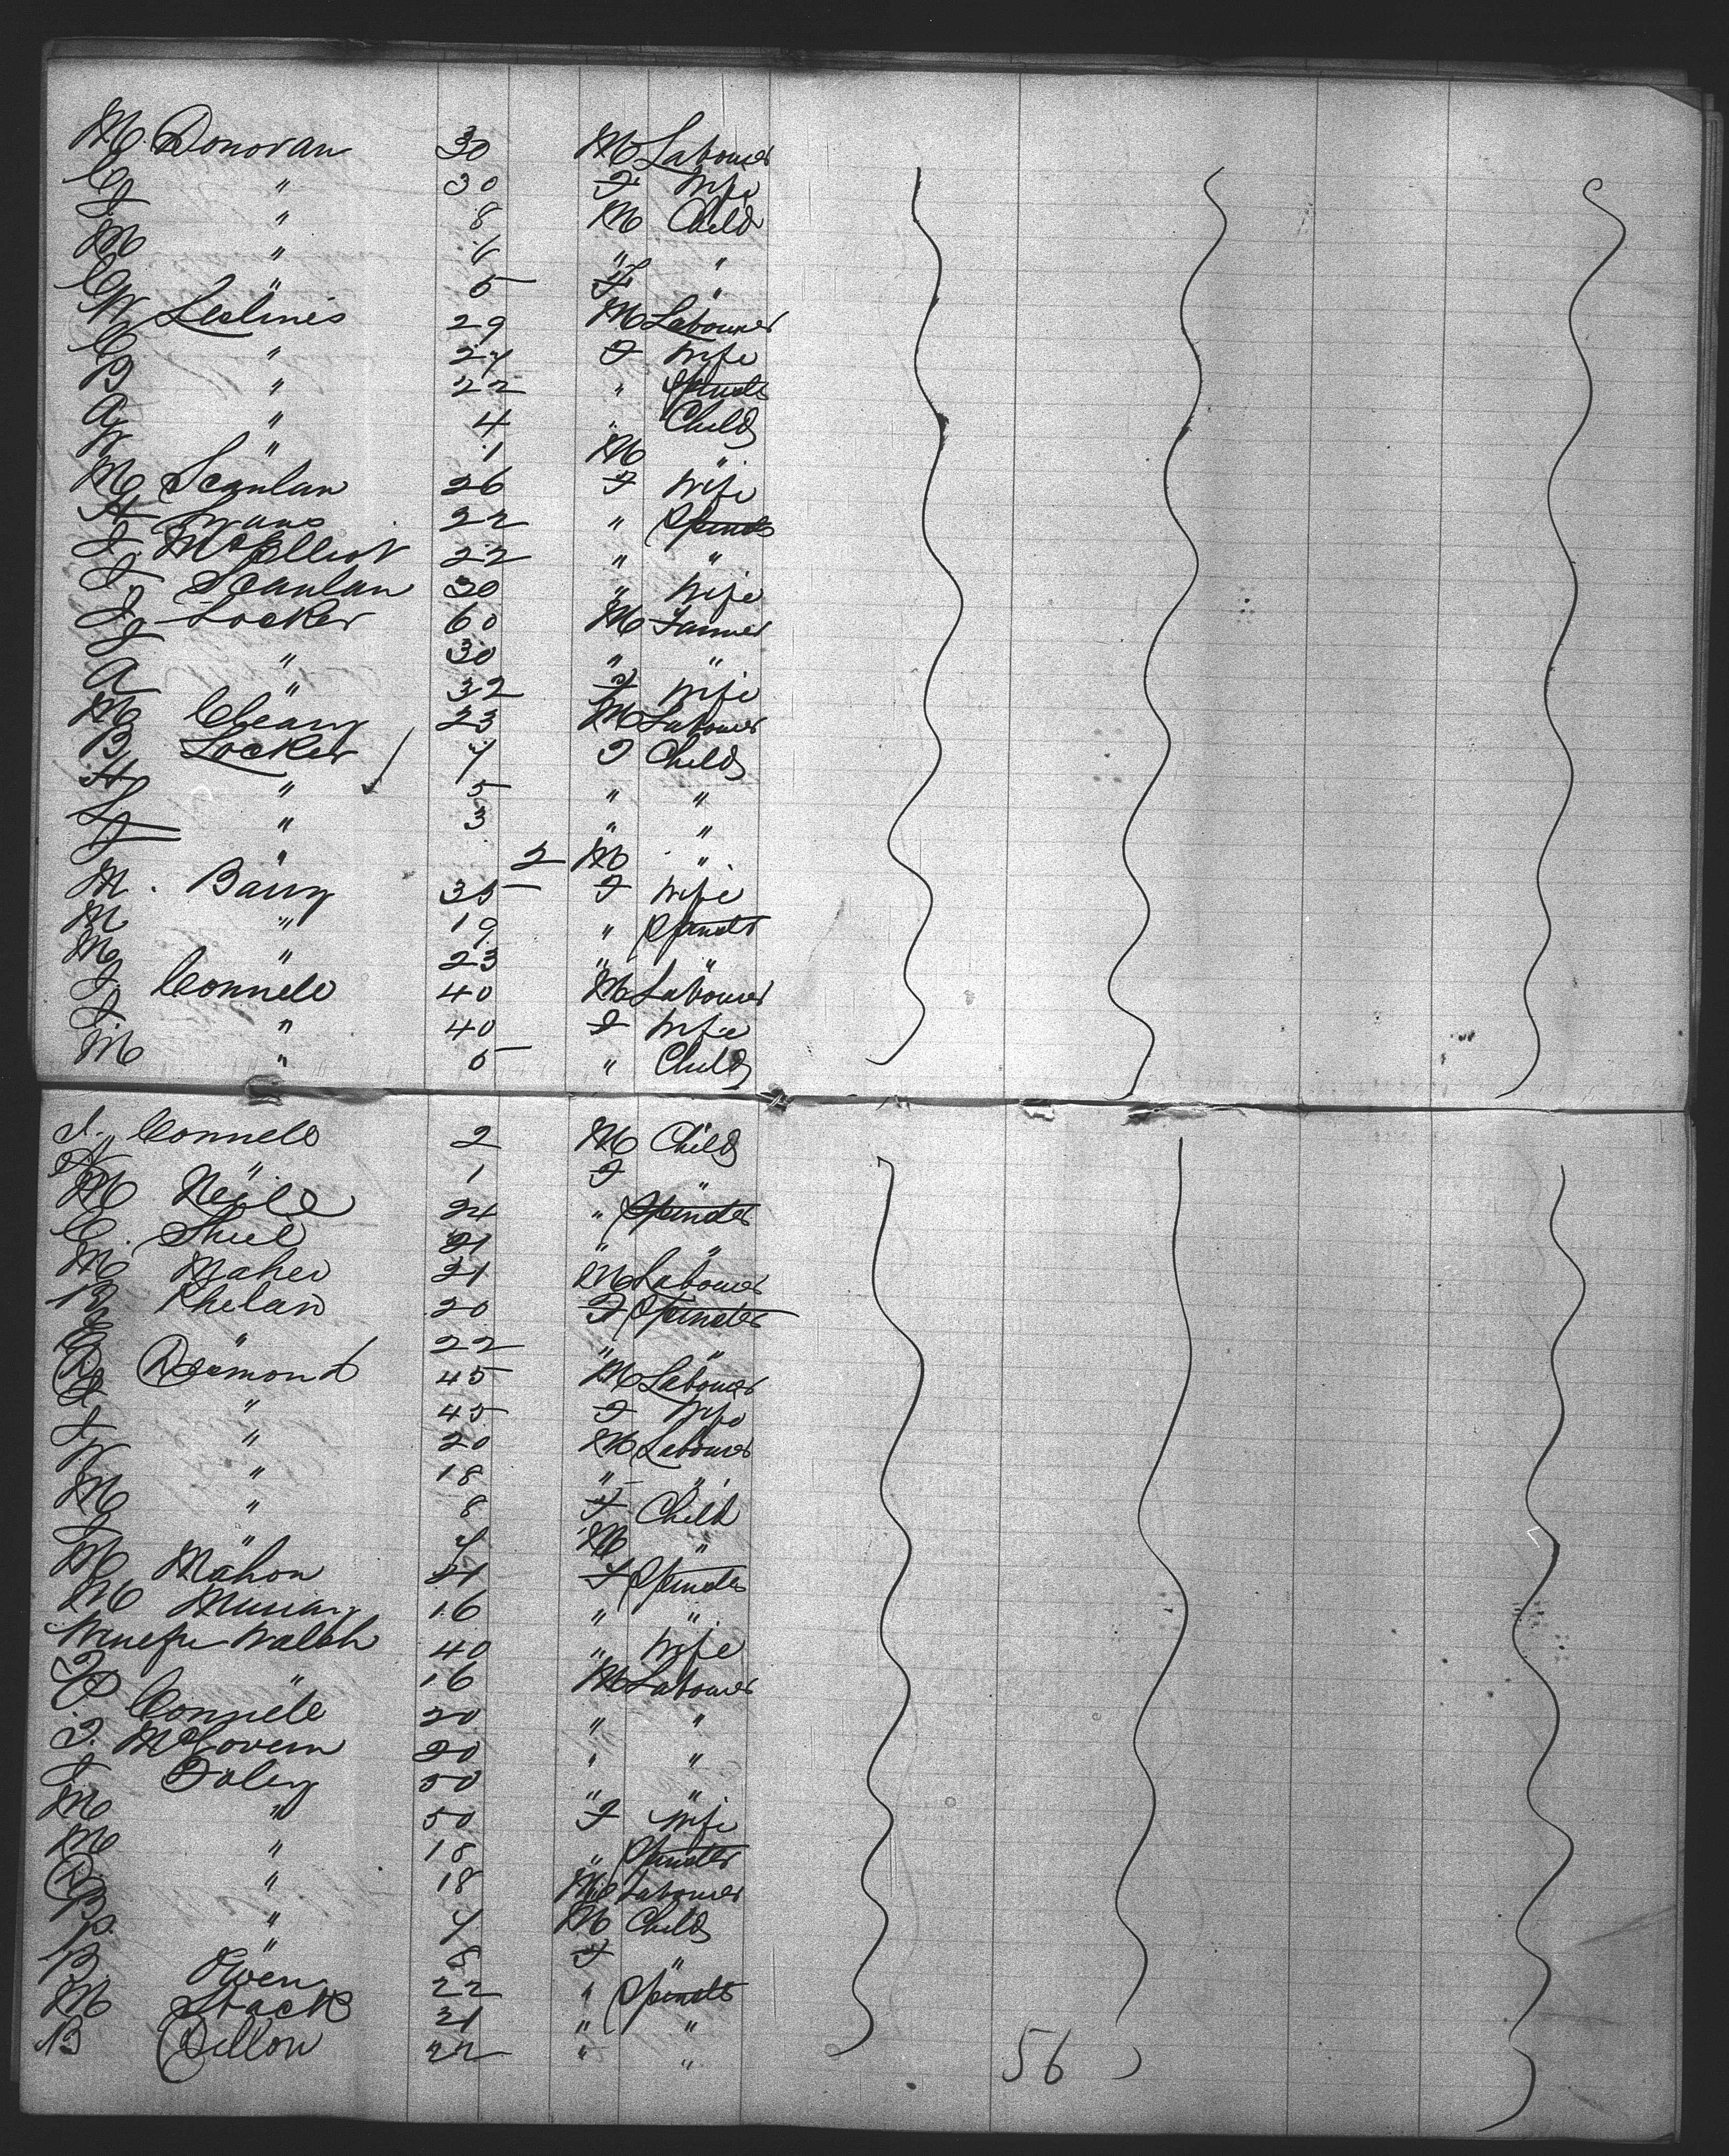 M. Donovan 30 M Labourer
C " 30 F Wife
J " 8 M Child
M " 6 " "
C " 5 F "
W 29 M Labourer
C " 24 F Wife
B " 22 " Spinster
A " 4 " Child
W " 1 M "
M Scanlan 26 F Wife
H 22 " Spinster
J. McElliot 22 " "
J. Scanlan 30 " Wife
J Locker 60 M Farmer
J " 30 " "
A " 32 F Wife
M Cleary 23 M Labourer
B Locker 7 F Child
H " 5 " "
L " 3 " "
J " 2 M "
M. Barry 35 F Wife
M " 19 " Spinster
M " 23 " "
J. Connell 40 M Labourer
J " 40 F Wife
M " 5 " Child
J. Connell 2 M Child
" 1 F "
M Neile 24 " Spinster
C. Shiel 21 " "
M Maher 21 M Labourer
B Phelan 20 F Spinster
E " 22 " "
D Desmond 45 M Labourer
" 45 F Wife
J " 20 M Labourer
W " 18 " "
M " 8 F Child
J " 7 M "
M Mahon 21 F Spinster
M Murray 16 " "
Winefre Walsh 40 " Wife
T " 16 M Labourer
P Connell 20 " "
T. McGovern 20 " "
J Foley 50 " "
M " 50 F Wife
M " 18 " Spinster
D " 18 M Labourer
B " 7 M Child
P. " 8 F "
B Owen 22 " Spinster
M Stack 21 " "
B Dillon 22 " "
56